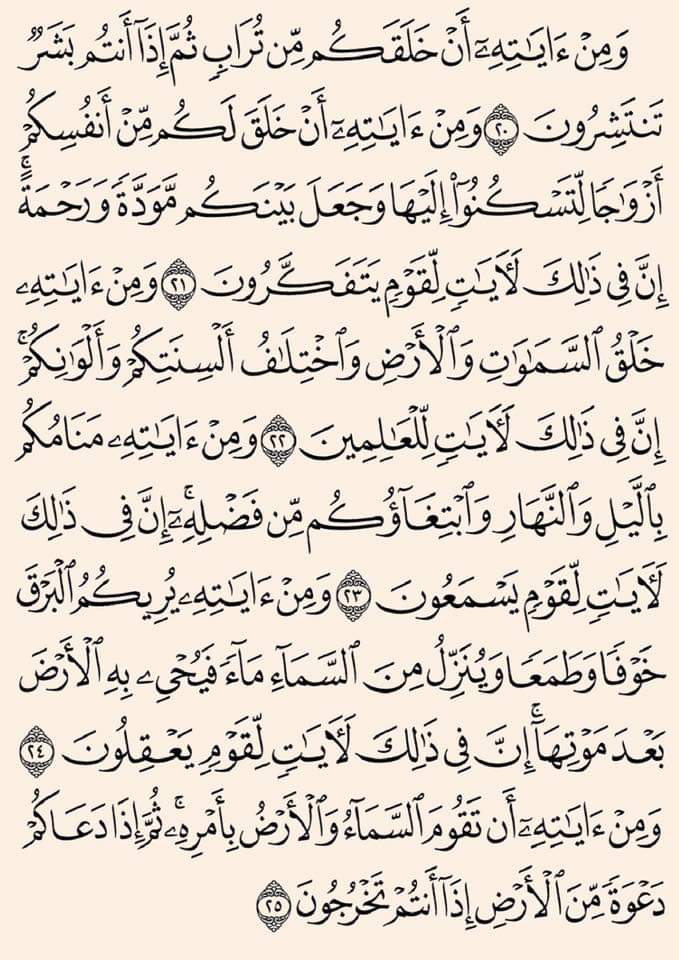 وَمِنْ ءَايَٰتِهِۦٓ أَنْ خَلَقَكُم مِّن تُرَابٍ ثُمَّ إِذَآ أَنتُم بَشَرٌ
تَنتَشِرُونَ ٢٠ وَمِنْ ءَايَٰتِهِۦٓ أَنْ خَلَقَ لَكُم مِّنْ أَنفُسِكُمْ
أَزْوَٰجًا لِّتَسْكُنُوٓا۟ إِلَيْهَا وَجَعَلَ بَيْنَكُم مَّوَدَّةً وَرَحْمَةً ۚ
إِنَّ فِى ذَٰلِكَ لَءَايَٰتٍ لِّقَوْمٍ يَتَفَكَّرُونَ ٢١ وَمِنْ ءَايَٰتِهِۦ
خَلْقُ ٱلسَّمَٰوَٰتِ وَٱلْأَرْضِ وَٱخْتِلَٰفُ أَلْسِنَتِكُمْ وَأَلْوَٰنِكُمْ ۚ
إِنَّ فِى ذَٰلِكَ لَءَايَٰتٍ لِّلْعَٰلِمِينَ ٢٢ وَمِنْ ءَايَٰتِهِۦ مَنَامُكُم
بِٱلَّيْلِ وَٱلنَّهَارِ وَٱبْتِغَآؤُكُم مِّن فَضْلِهِۦٓ ۚ إِنَّ فِى ذَٰلِكَ
لَءَايَٰتٍ لِّقَوْمٍ يَسْمَعُونَ ٢٣ وَمِنْ ءَايَٰتِهِۦ يُرِيكُمُ ٱلْبَرْقَ
خَوْفًا وَطَمَعًا وَيُنَزِّلُ مِنَ ٱلسَّمَآءِ مَآءً فَيُحْىِۦ بِهِ ٱلْأَرْضَ
بَعْدَ مَوْتِهَآ ۚ إِنَّ فِى ذَٰلِكَ لَءَايَٰتٍ لِّقَوْمٍ يَعْقِلُونَ ٢٤
وَمِنْ ءَايَٰتِهِۦٓ أَن تَقُومَ ٱلسَّمَآءُ وَٱلْأَرْضُ بِأَمْرِهِۦ ۚ ثُمَّ إِذَا دَعَاكُمْ
دَعْوَةً مِّنَ ٱلْأَرْضِ إِذَآ أَنتُمْ تَخْرُجُونَ ٢٥